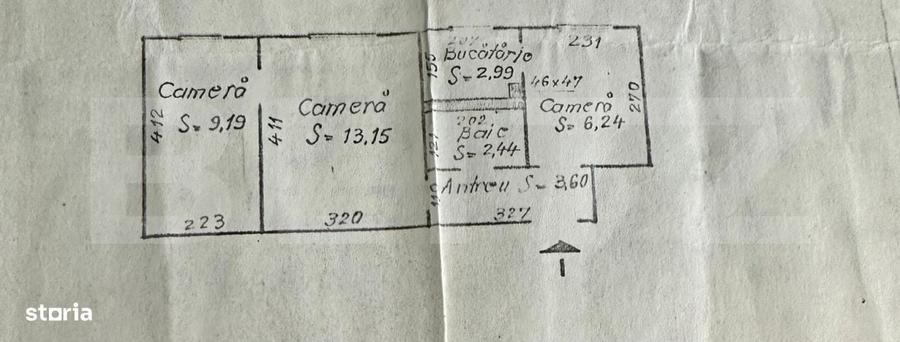 Cameră
S= 9,19
412
223
Cameră
S= 13,15
411
320
Bucătărie
S= 2,99
155
46x47
202
Baie
S= 2,44
121
231
Cameră
S= 6,24
270
Antreu S= 3,60
110
327
I
storia